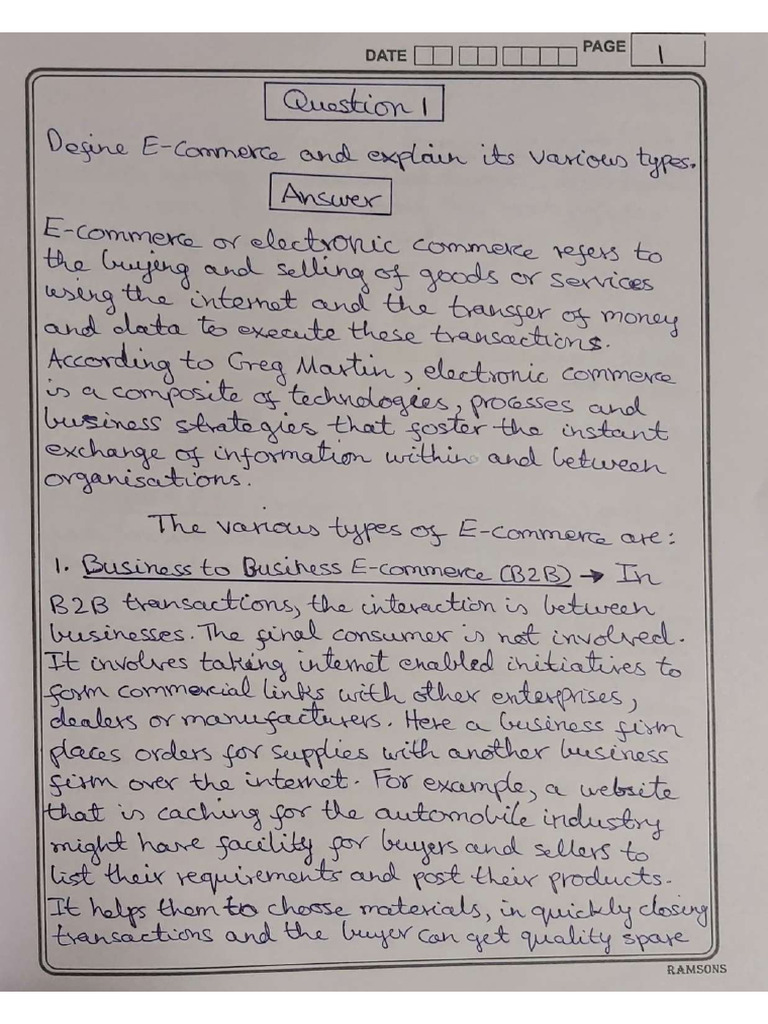 DATE PAGE 1
Question 1
Define E-Commerce and explain its various types.
Answer
E-commerce or electronic commerce refers to
the buying and selling of goods or services
using the internet and the transfer of money
and data to execute these transactions.
According to Greg Martin, electronic commerce
is a composite of technologies, processes and
business strategies that foster the instant
exchange of information within and between
organisations.
The various types of E-commerce are:
1. Business to Business E-commerce (B2B) → In
B2B transactions, the interaction is between
businesses. The final consumer is not involved.
It involves taking internet enabled initiatives to
form commercial links with other enterprises,
dealers or manufacturers. Here a business firm
places orders for supplies with another business
firm over the internet. For example, a website
that is caching for the automobile industry
might have facility for buyers and sellers to
list their requirements and post their products.
It helps them to choose materials, in quickly closing
transactions and the buyer can get quality spare
RAMSONS